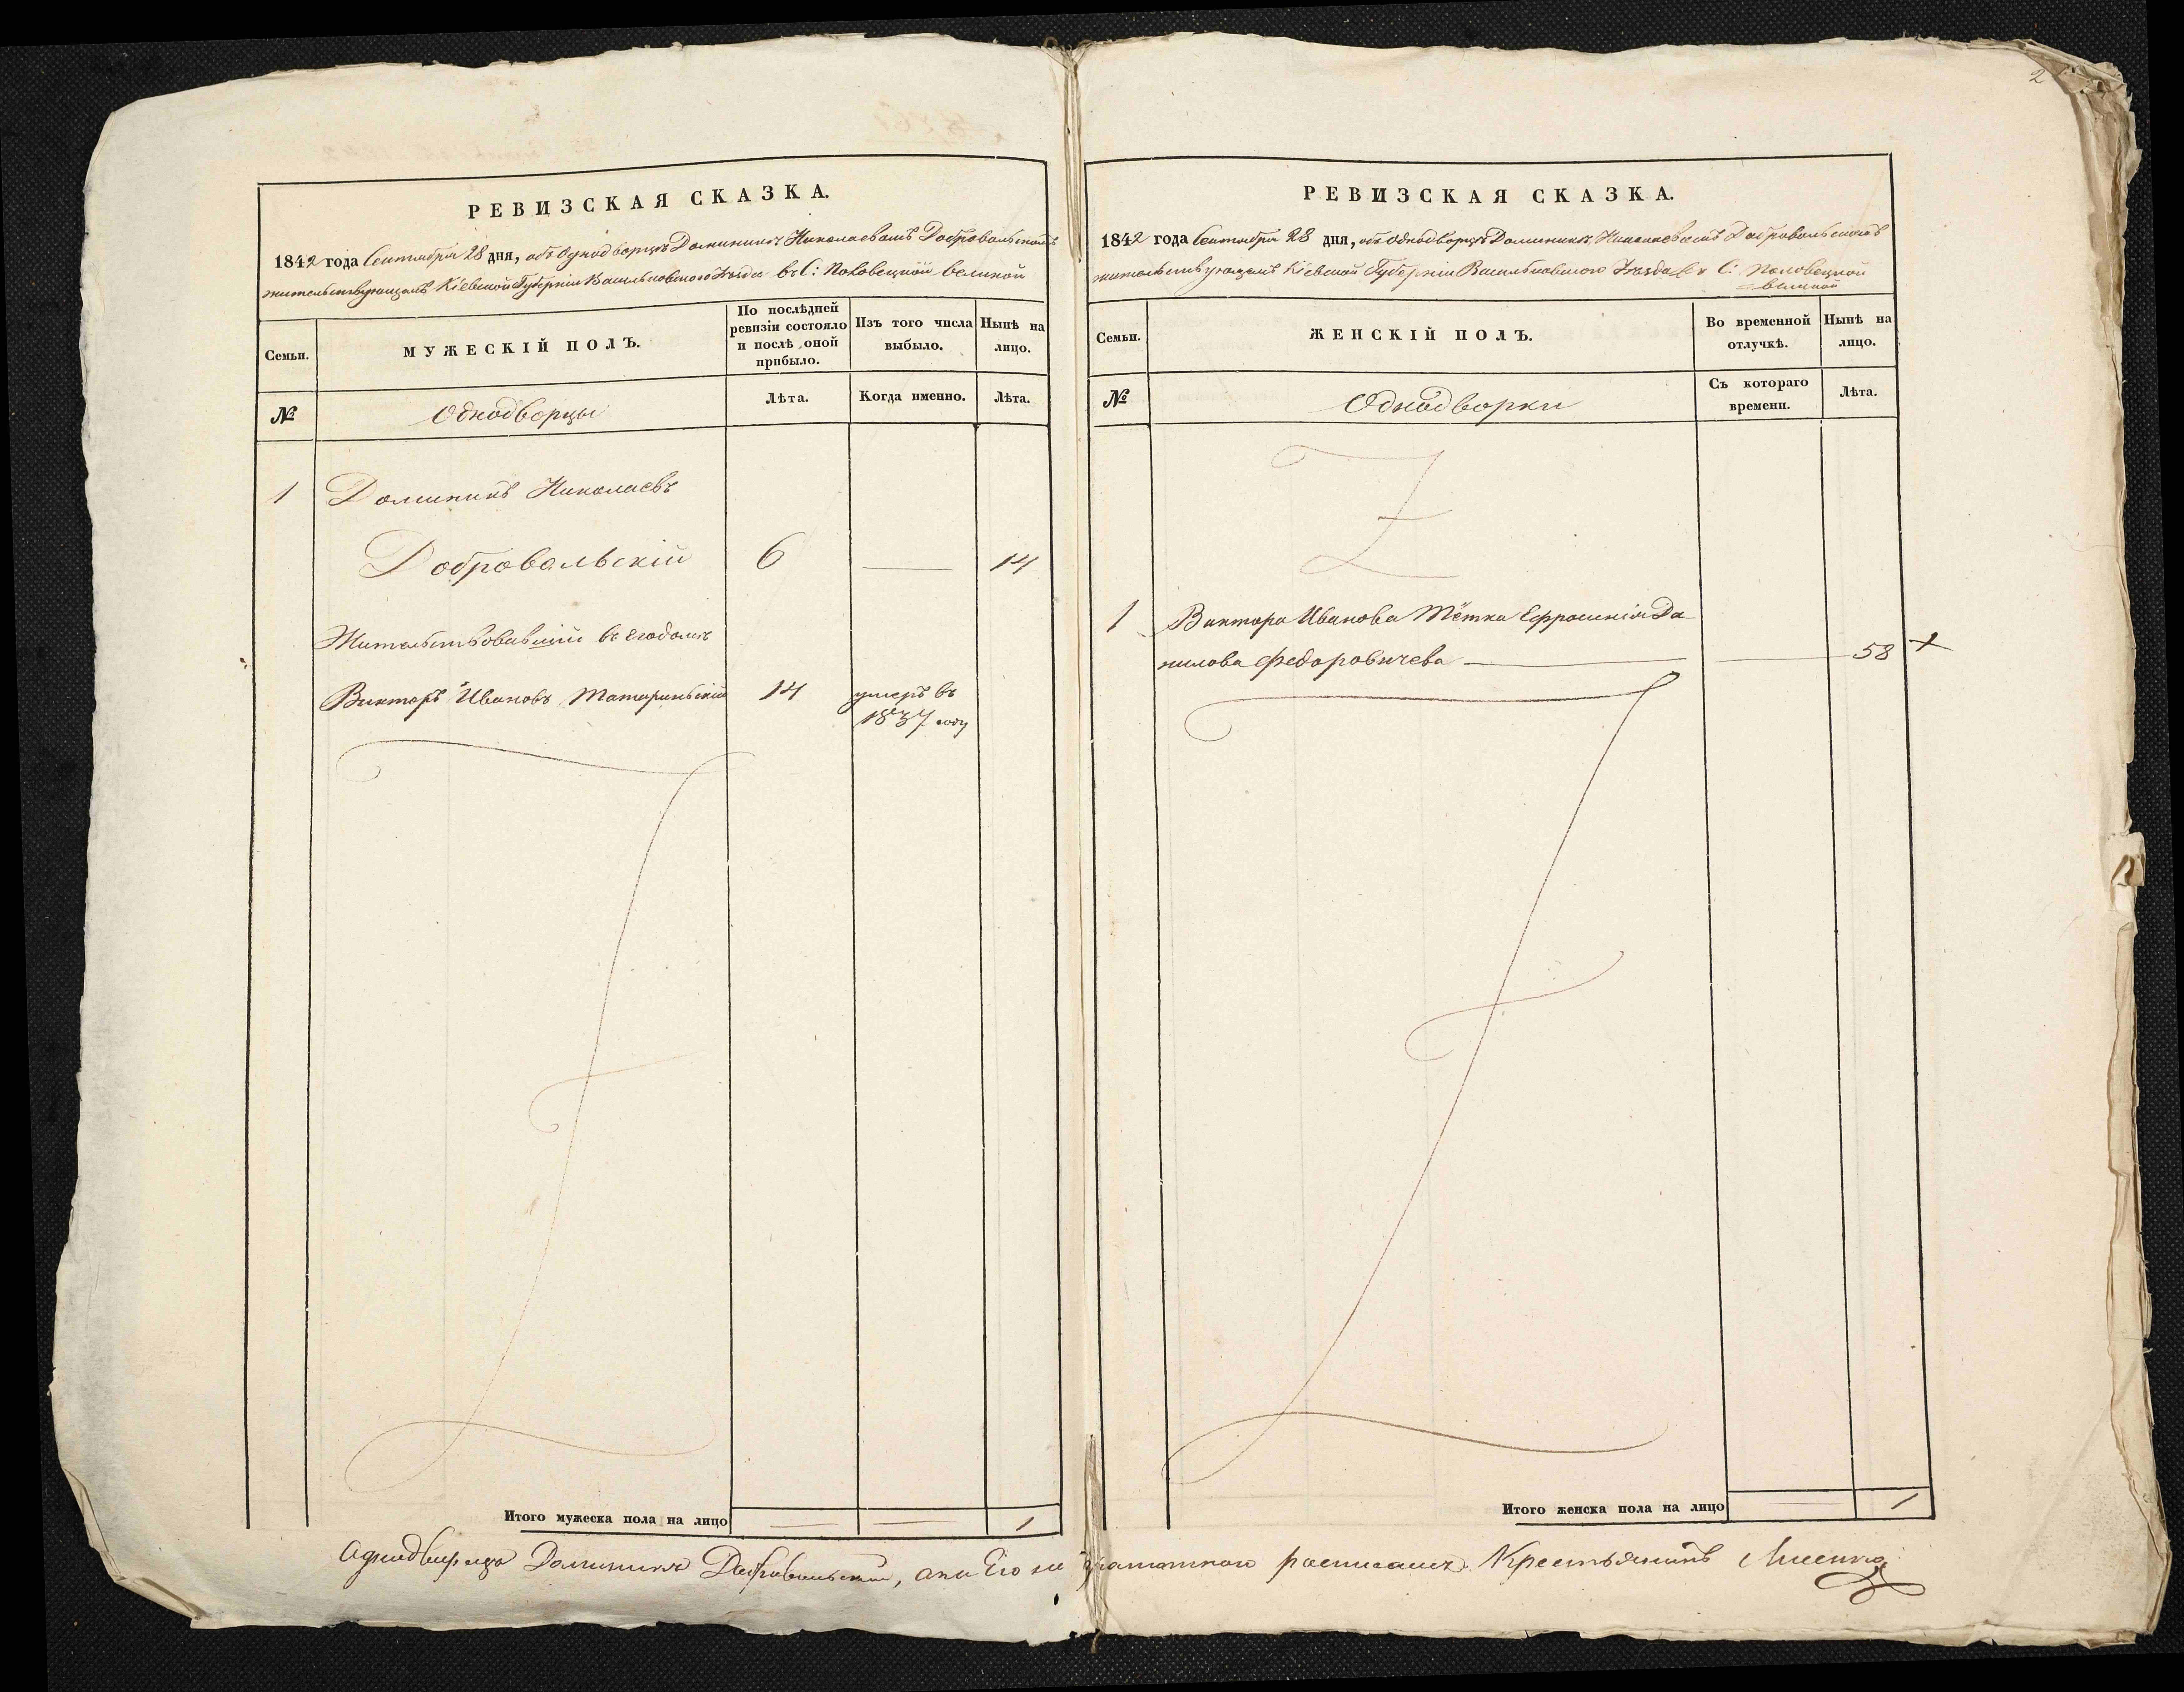 2
РЕВИЗСКАЯ СКАЗКА.
1842 года Сентября 28 дня, объ Однодворцѣ Доминикѣ Николаевомъ Добровольскомъ
жительствующемъ Кіевской Губерніи Васильковского Уѣзда въ С: Половецкой великой
Семьи.
МУЖЕСКІЙ ПОЛЪ.
По послѣдней ревизіи состояло и послѣ оной прибыло.
Изъ того числа выбыло.
Нынѣ на лицо.
№
Однодворцы
Лѣта.
Когда именно.
Лѣта.
1 Доминикъ Николаевъ
Добровольскій 6 — 14
Жительствовавшій въ его домѣ
Викторъ Ивановъ 14 умеръ въ
1837 году
Итого мужеска пола на лицо — — 1
РЕВИЗСКАЯ СКАЗКА.
1842 года Сентября 28 дня, объ Однодворцѣ Доминикѣ Николаевомъ Добровольскомъ
жительствующемъ Кіевской Губерніи Васильковского Уѣзда въ С: Половецкой
великой
Семьи.
ЖЕНСКІЙ ПОЛЪ.
Во временной отлучкѣ.
Нынѣ на лицо.
№
Однодворки
Съ котораго времени.
Лѣта.
1 Виктора Иванова тётка Ефросинія Да-
нилова Федоровичева — — 58 +
Итого женска пола на лицо — 1
Доминикъ Добровольскій, а за Его не грамотного росписался Крестьянинъ